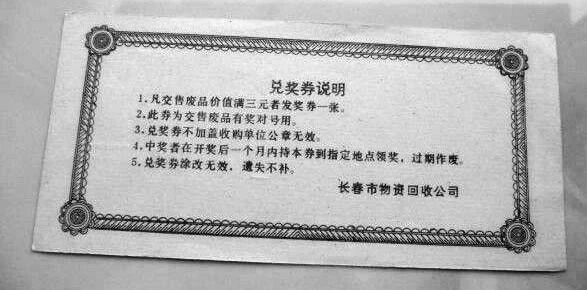 兑奖券说明
1.凡交售废品价值满三元者发奖券一张。
2.此券为交售废品有奖对号用。
3.兑奖券不加盖收购单位公章无效。
4.中奖者在开奖后一个月内持本券到指定地点领奖，过期作废。
5.兑奖券涂改无效，遗失不补。
长春市物资回收公司